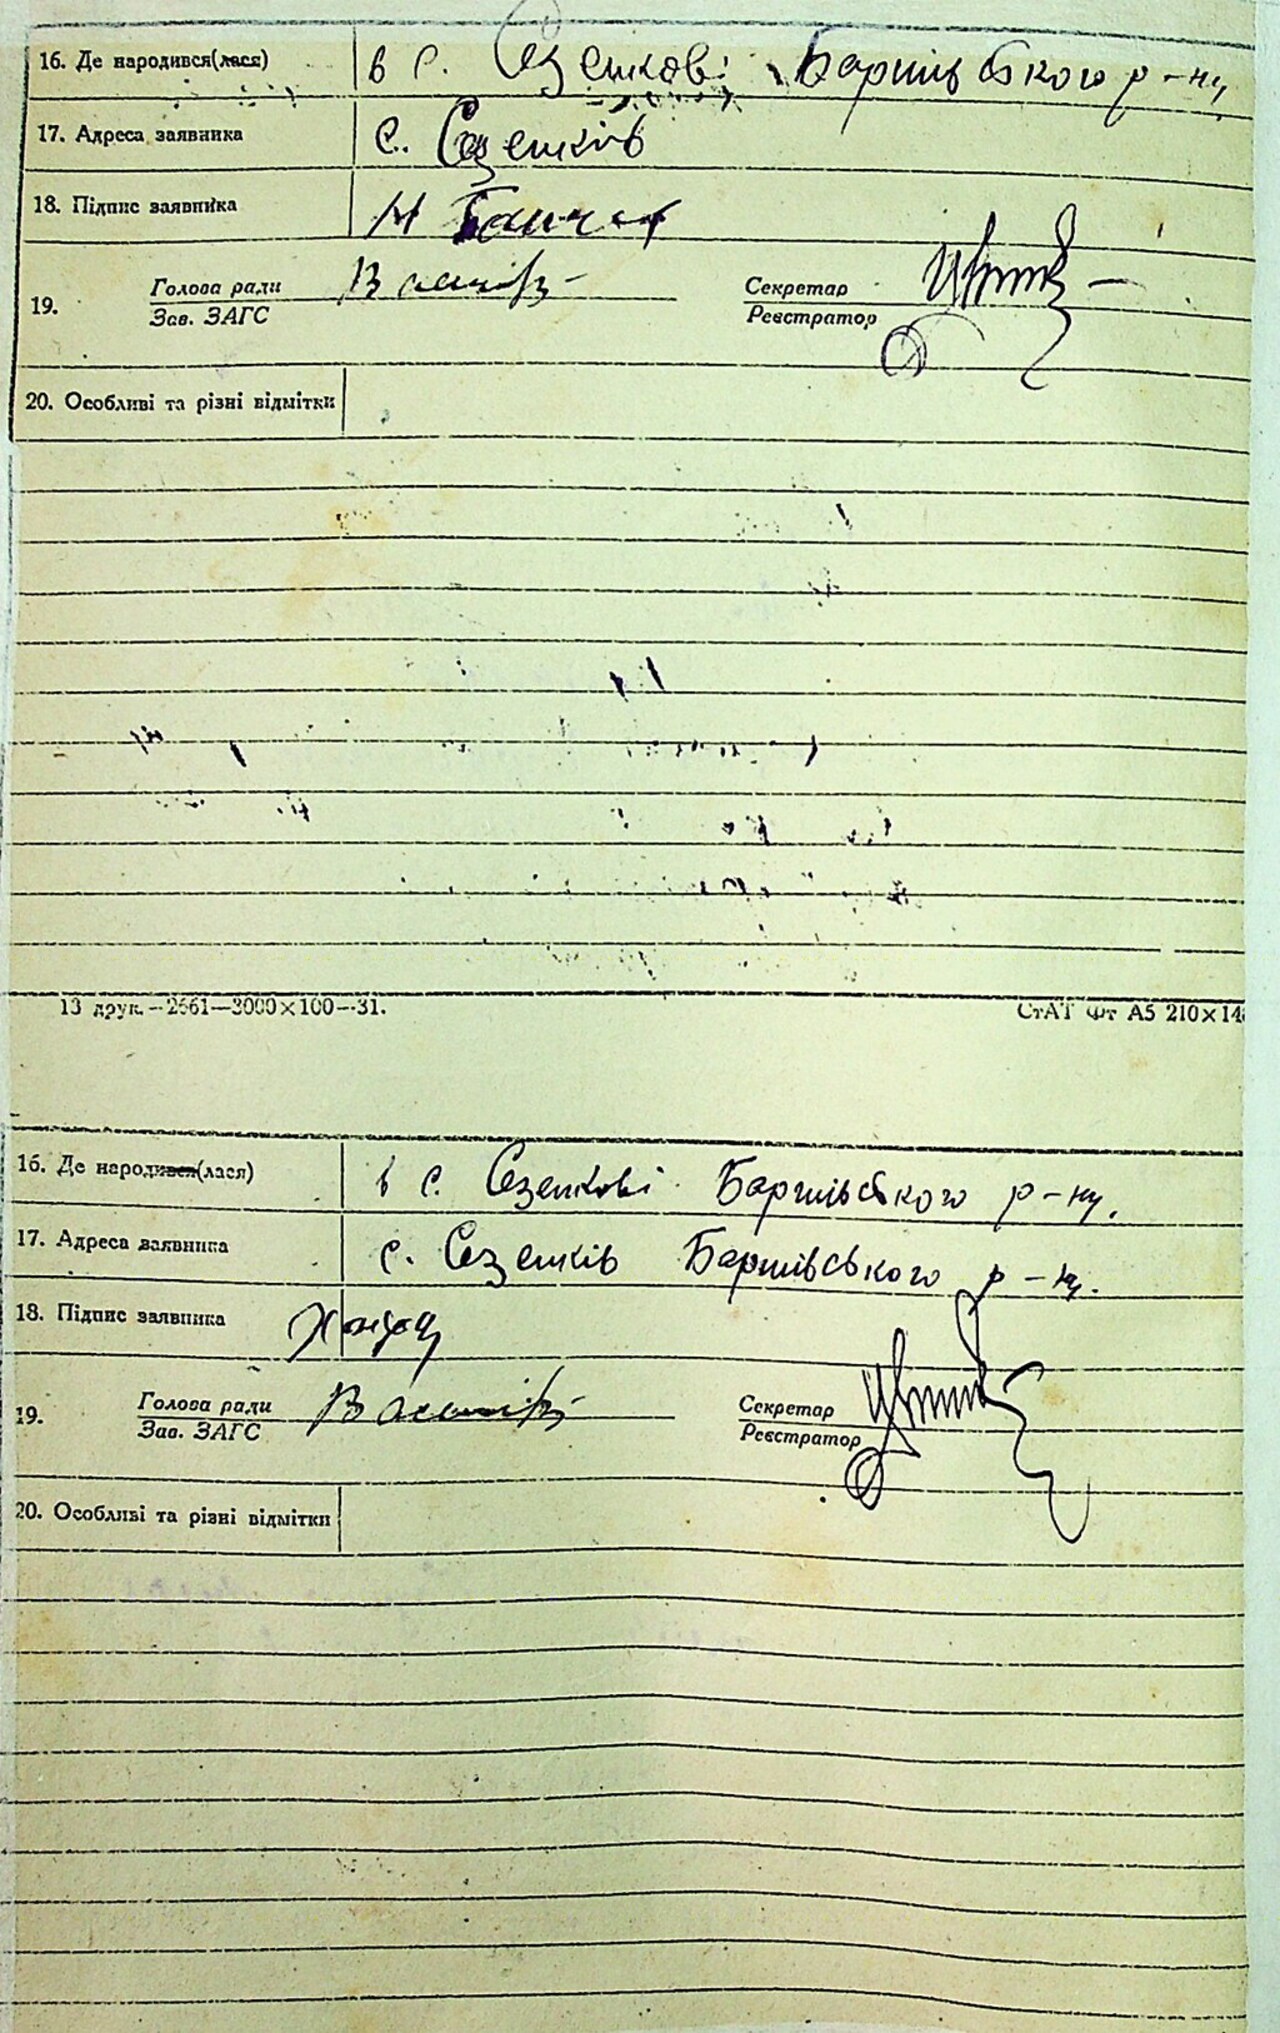 16. Де народився(лася) в с. Сезенкові Баришівського р-ну,
17. Адреса заявника с. Сезенків
18. Підпис заявника
19. Голова ради Секретар
Зав. ЗАГС Реєстратор
20. Особливі та різні відмітки
13 друк.—2661—3000×100—31. СтАТ Фт А5 210×14
16. Де народився(лася) в с. Сезенкові Баришівського р-ну.
17. Адреса заявника с. Сезенків Баришівського р-ну.
18. Підпис заявника
19. Голова ради Секретар
Зав. ЗАГС Реєстратор
20. Особливі та різні відмітки